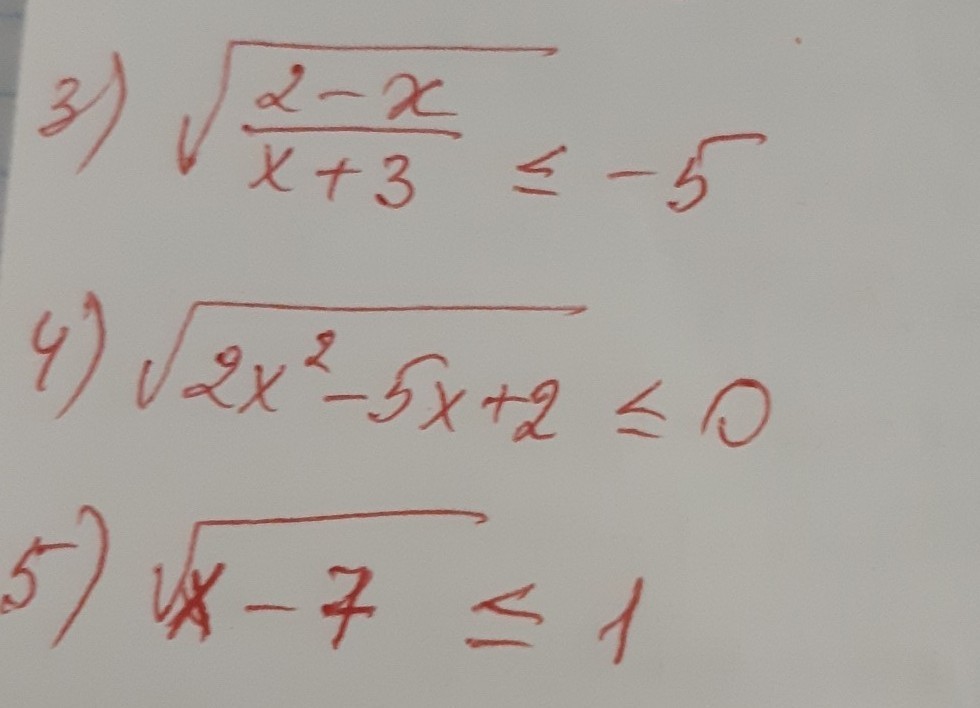 3) √((2 - x)/(x + 3)) ≤ -5
4) √(2x² - 5x + 2) ≤ 0
5) √(x - 7) ≤ 1